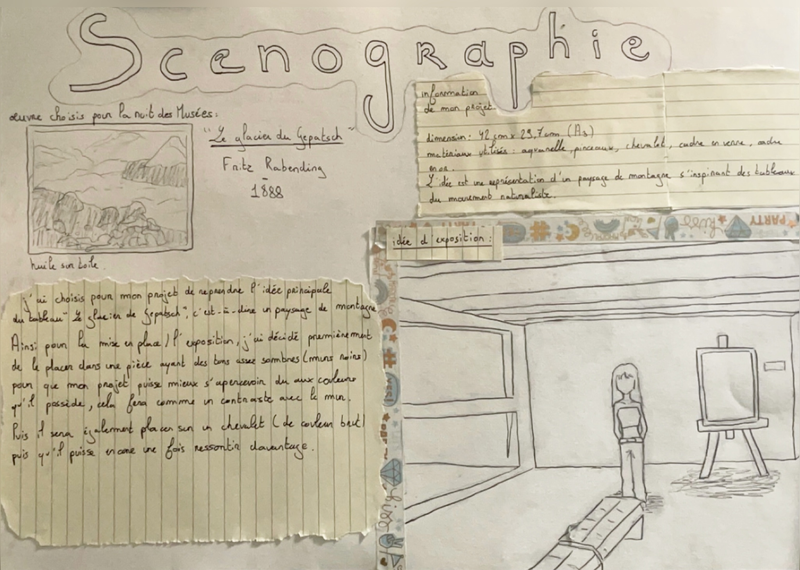 Scenographie
œuvre choisis pour la nuit des Musées:
"Le glacier du Gepatsch"
Fritz Rabending
1888
huile sur toile
information
de mon projet
dimension: 42 cm x 29,7 cm (A3)
matériaux utilisés: aquarelle, pinceaux, chevalet, cadre en verre, cadre
en or.
L'idée est une représentation d'un paysage de montagne s'inspirant des tableaux
du mouvement naturaliste.
PARTY
idée d'exposition:
j'ai choisis pour mon projet de reprendre l'idée principale
du tableau "Le glacier de Gepatsch", c'est-à-dire un paysage de montagne
Ainsi pour la mise en place / l'exposition, j'ai décidé premièrement
de le placer dans une pièce ayant des tons assez sombres (murs noirs)
pour que mon projet puisse mieux s'apercevoir du aux couleurs
qu'il possède, cela fera comme un contraste avec le mur.
Puis il sera également placer sur un chevalet (de couleur)
puis qu'il puisse encore une fois ressortir davantage.